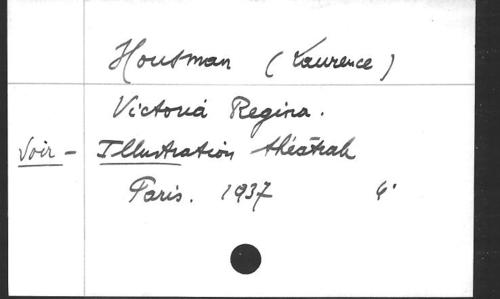 Housman (Laurence)
Victoria Regina.
Voir - Illustration théâtrale
Paris. 1937